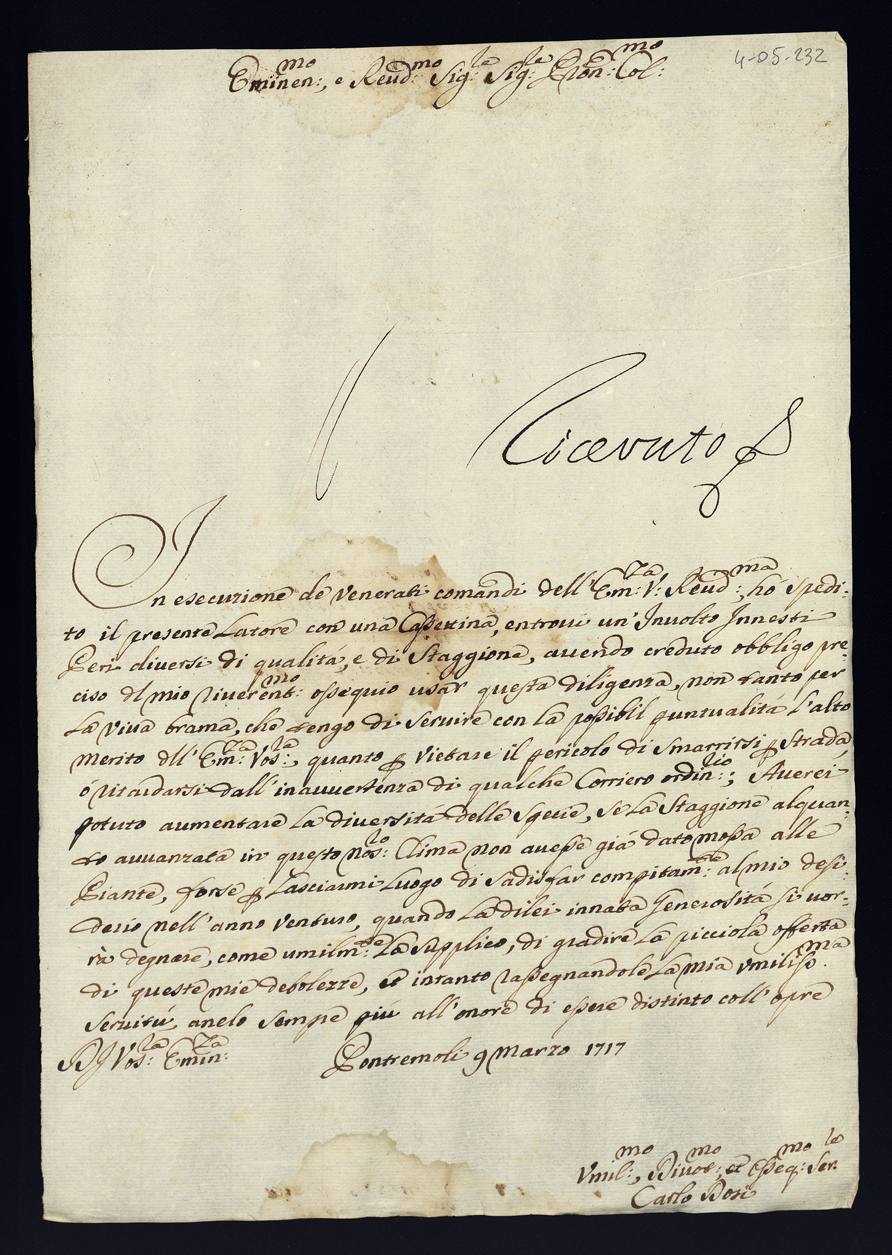 4-05-232
Eminen:mo, e Reud:mo Sig:re Sig:re Pron: Col:mo
Ricevuto
In esecuzione de Venerati comandi dell'Em:za V: Reud:ma, hò spedi-
to il presente Latore con una Cassettina, entrovi un'Involto Innesti
Peri diversi di qualitá, e di Staggione, avendo creduto obbligo pre-
ciso dl mio riverent:mo ossequio usar questa diligenza, non tanto per
La viva brama, che tengo di Servire con la possibil puntualitá l'alto
merito dll'Em:za Vos:ra, quanto p vietare il pericolo di Smarrirsi p Strada,
ó ritardarsi dall'inavvertenza di qualche Corriero ordin:rio; Averei
potuto aumentare La diversitá delle Specie, se La Staggione alquan-
to avvanzata in questo nos:ro Clima non avesse giá dato mossa alle
Piante, forse p Lasciarmi Luogo di Sadisfar compitam:te al mio desi-
derio nell'anno venturo, quando La dilei innata Generositá si vor-
rà degnare, come umilm:te La Supplico, di gradire La picciola offerta
di queste mie debolezze, et intanto rassegnandole La mia Vmiliss:ma
Servitú, anelo Sempre piú all'onore di essere distinto coll'opre
DJ Vos:ra Emin:za
Pontremoli 9 Marzo 1717
Vmil:mo, Divot:mo et Osseq:mo Ser:re
Carlo Bosi